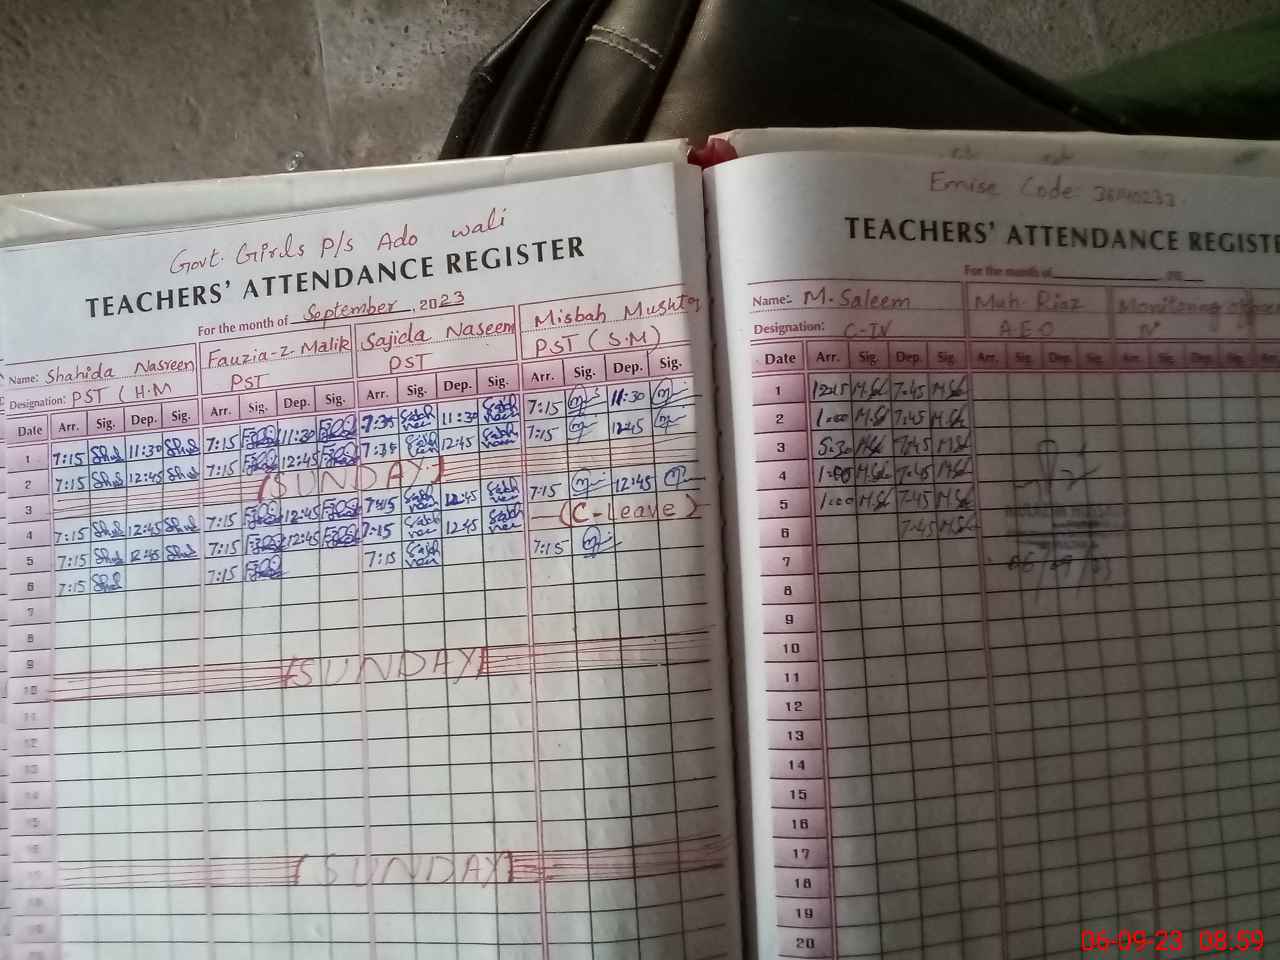 Govt. Girls P/S Ado wali
TEACHERS' ATTENDANCE REGISTER
For the month of September, 2023
Name: Shahida Nasreen Fauzia-Z-Malik Sajida Naseem Misbah Mushtaq
Designation: PST (H.M PST PST PST (S.M)
Date Arr. Sig. Dep. Sig. Arr. Sig. Dep. Sig. Arr. Sig. Dep. Sig. Arr. Sig. Dep. Sig.
1 7:15 Shd 11:30 Shd 7:15 11:30 7:35 11:30 7:15 11:30
2 7:15 Shd 12:45 Shd 7:15 12:45 7:35 12:45 7:15 12:45
3 (SUNDAY)
4 7:15 Shd 12:45 Shd 7:15 12:45 7:15 12:45 7:15 12:45
5 7:15 Shd 12:45 Shd 7:15 12:45 7:15 12:45 (C-Leave)
6 7:15 Shd 7:15 7:15 7:15
7
8
9
10 (SUNDAY)
11
12
13
14
15
16
17 (SUNDAY)
18
19
20
Emise Code:
TEACHERS' ATTENDANCE REGISTE
For the month of
Name: M. Saleem Muh. Riaz Monitoring
Designation: C-IV A.E.O
Date Arr. Sig. Dep. Sig. Arr. Sig. Dep. Sig. Arr. Sig. Dep. Sig.
1 12:15 7:45
2 1:00 7:45
3 5:30 7:45
4 1:00 7:45
5 1:00 7:45
6 7:45
7 06/09/23
8
9
10
11
12
13
14
15
16
17
18
19
20
06-09-23 08:59